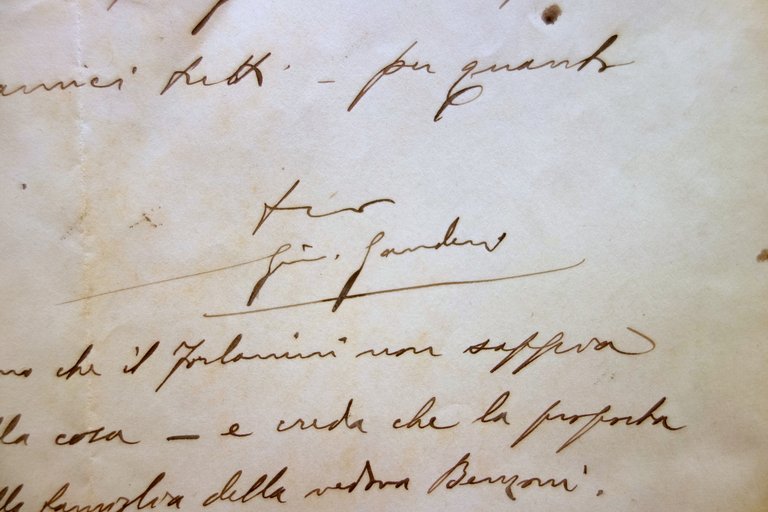 amici tutti – per quanto
tuo
Giu. Gandini
che il Forlanini non sappeva
la cosa – e creda che la proposta
famiglia della vedova Benzoni.